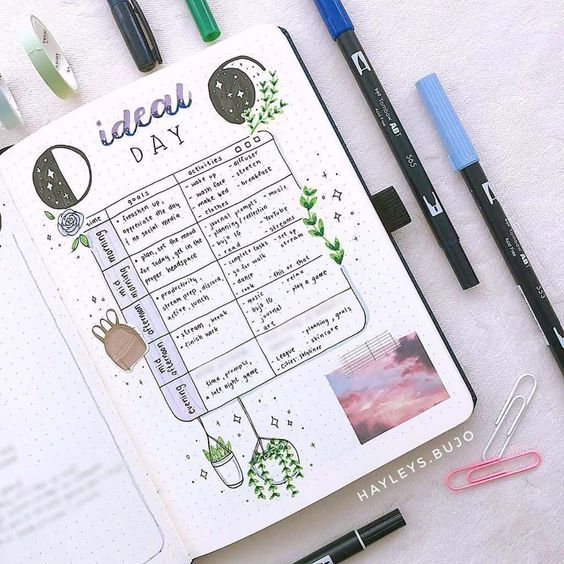 ideal
DAY
time
goals
activities
morning
• freshen up,
appreciate the day
! no social media
- wake up
- wash face
- make bed
- clothes
- diffuser
- stretch
- breakfast
mid morning
• plan, set the mood
for today, get in the
proper headspace
- journal prompts
- planning / reflection
- bujo, ig
- read
- music
- YouTube
- streams
afternoon
• productivity,
stream prep, discord,
active, lunch
- complete tasks
- go for walk
- dance
- cook
- set up
stream
- this or that
mid afternoon
• stream, break
• finish work
- music
- bujo ig
- journal
- relax
- play a game
evening
time, prompts,
a late night game
- League
- planning, goals
- skincare
HAYLEYS.BUJO
Tombow ABT
565
Tombow ABT
553